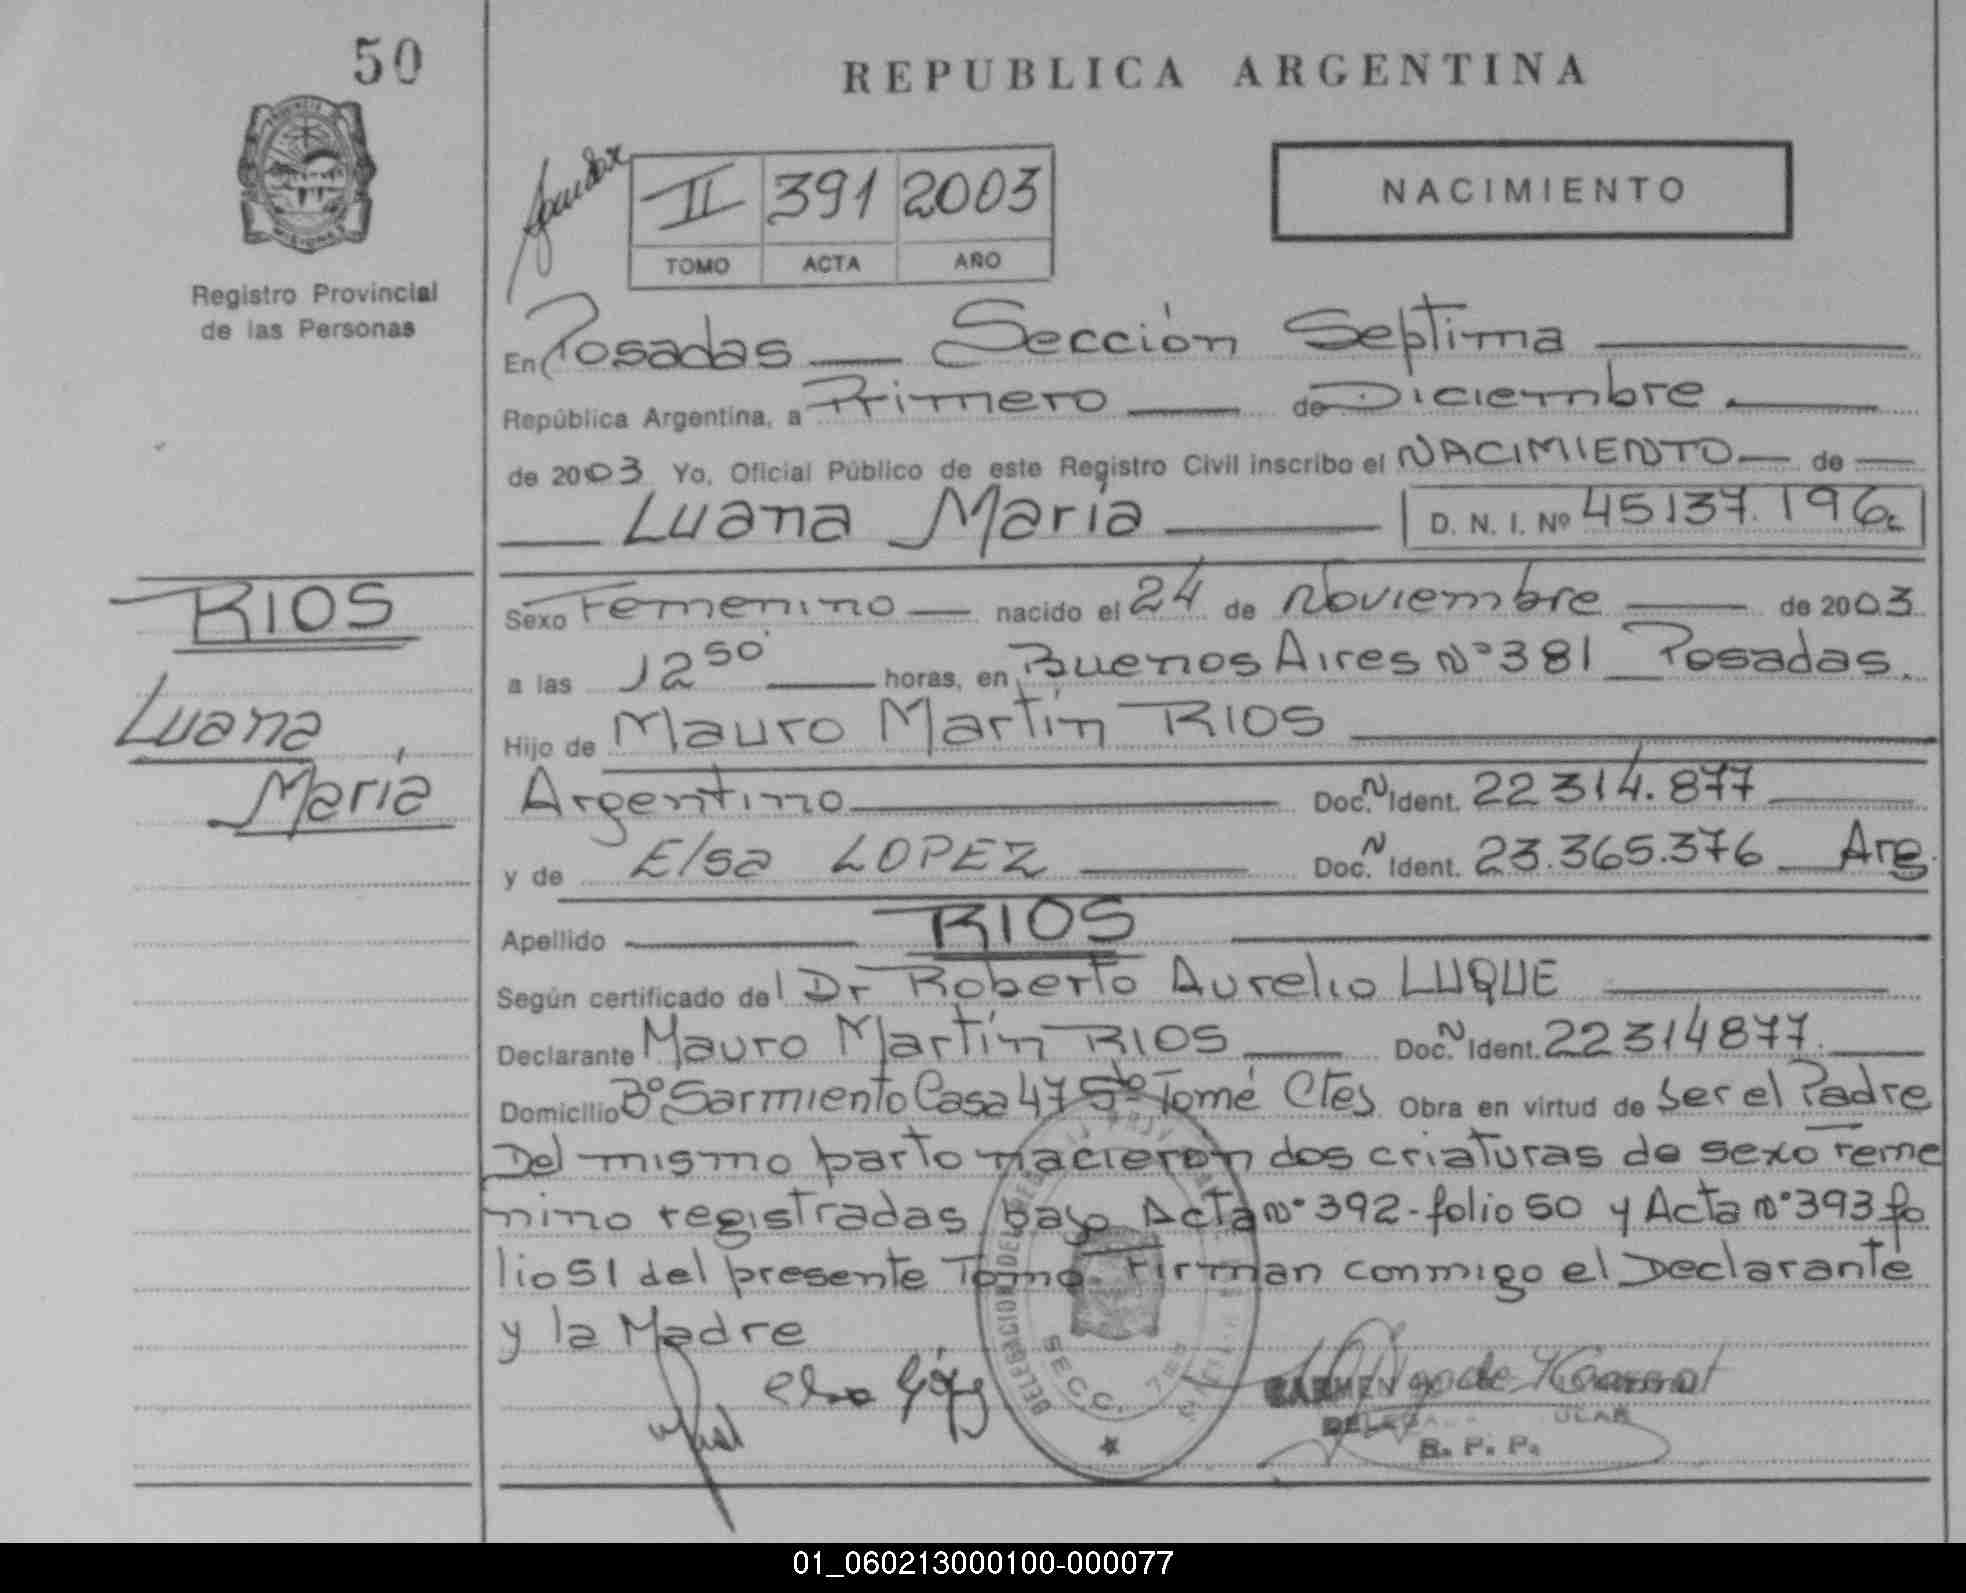 50
REPUBLICA ARGENTINA
PROVINCIA
MISIONES
Registro Provincial
de las Personas
II 391 2003
TOMO ACTA AÑO
NACIMIENTO
En Posadas — Sección Septima
República Argentina, a Primero — de Diciembre
de 2003 Yo, Oficial Público de este Registro Civil inscribo el NACIMIENTO — de —
Luana María
D. N. I. Nº 45137.196
RIOS
Luana
María
Sexo Femenino — nacido el 24 de Noviembre — de 2003
a las 12 50' — horas, en Buenos Aires Nº 381 _ Posadas.
Hijo de Mauro Martín RIOS
Argentino — Doc. N Ident. 22 314.877
y de Elsa LOPEZ — Doc. N Ident. 23.365.376 — Arg.
Apellido — RIOS
Según certificado del Dr Roberto Aurelio LUQUE
Declarante Mauro Martín RIOS — Doc. N Ident. 22314877.
Domicilio Bº Sarmiento Casa 47 Sto Tomé Ctes Obra en virtud de Ser el Padre
Del mismo parto nacieron dos criaturas de sexo feme
nino registradas bajo Acta Nº 392 - folio 50 y Acta Nº 393 fo
lio 51 del presente Tomo Firman conmigo el Declarante
y la Madre
SECC. 7
CARMEN
B. P. P.
01_060213000100-000077